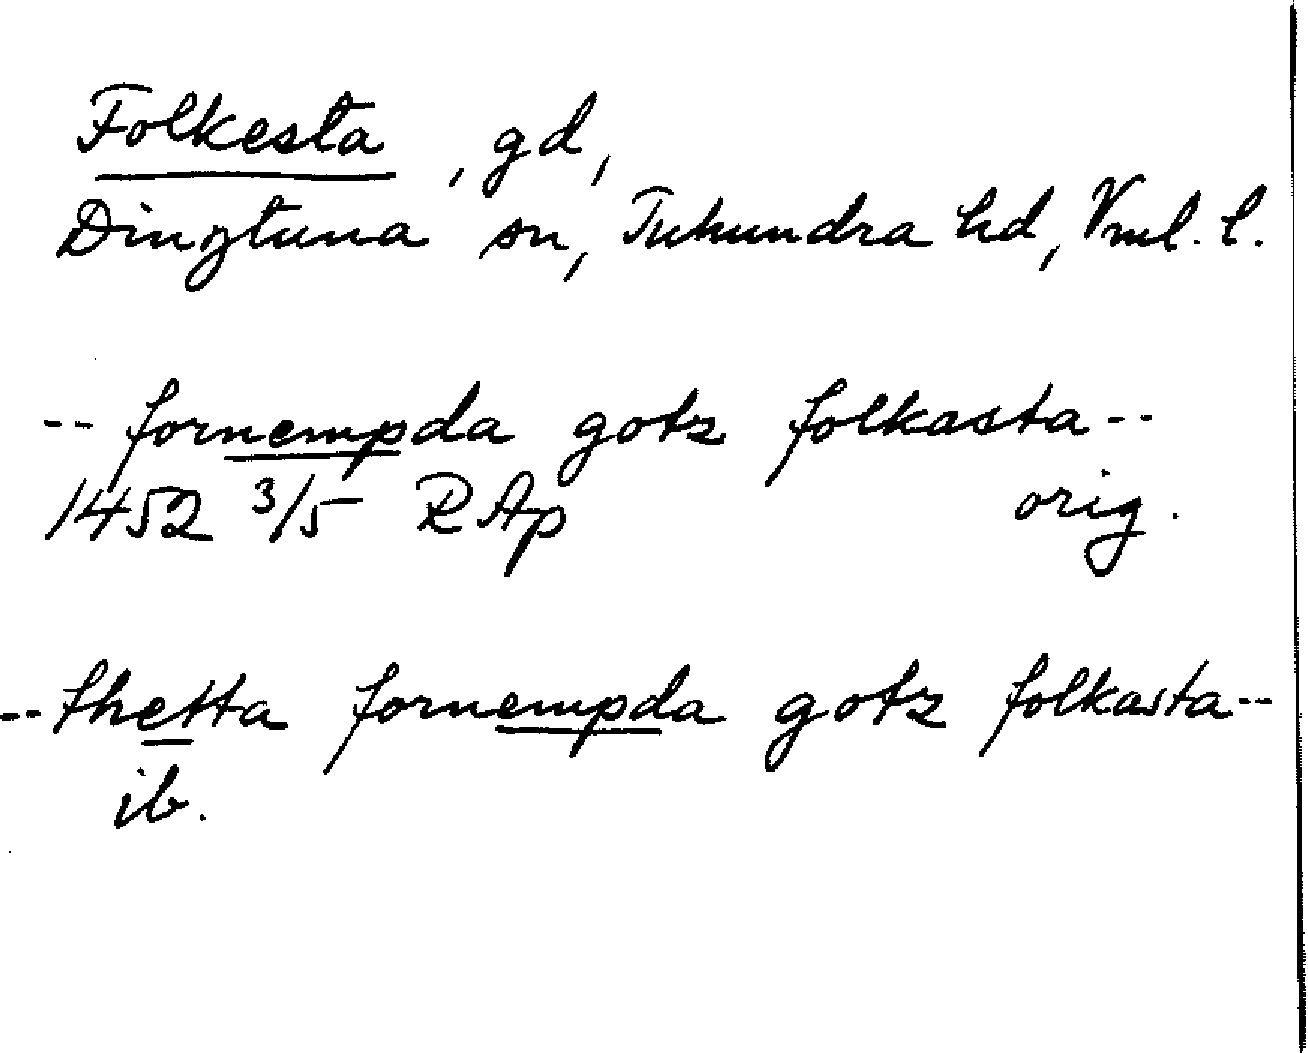 Folkesta, gd,
Dingtuna sn, Tuhundra hd, Vml. l.
-- fornempda gotz folkasta --
1452 3/5 RAp orig.
-- thetta fornempda gotz folkasta --
ib.